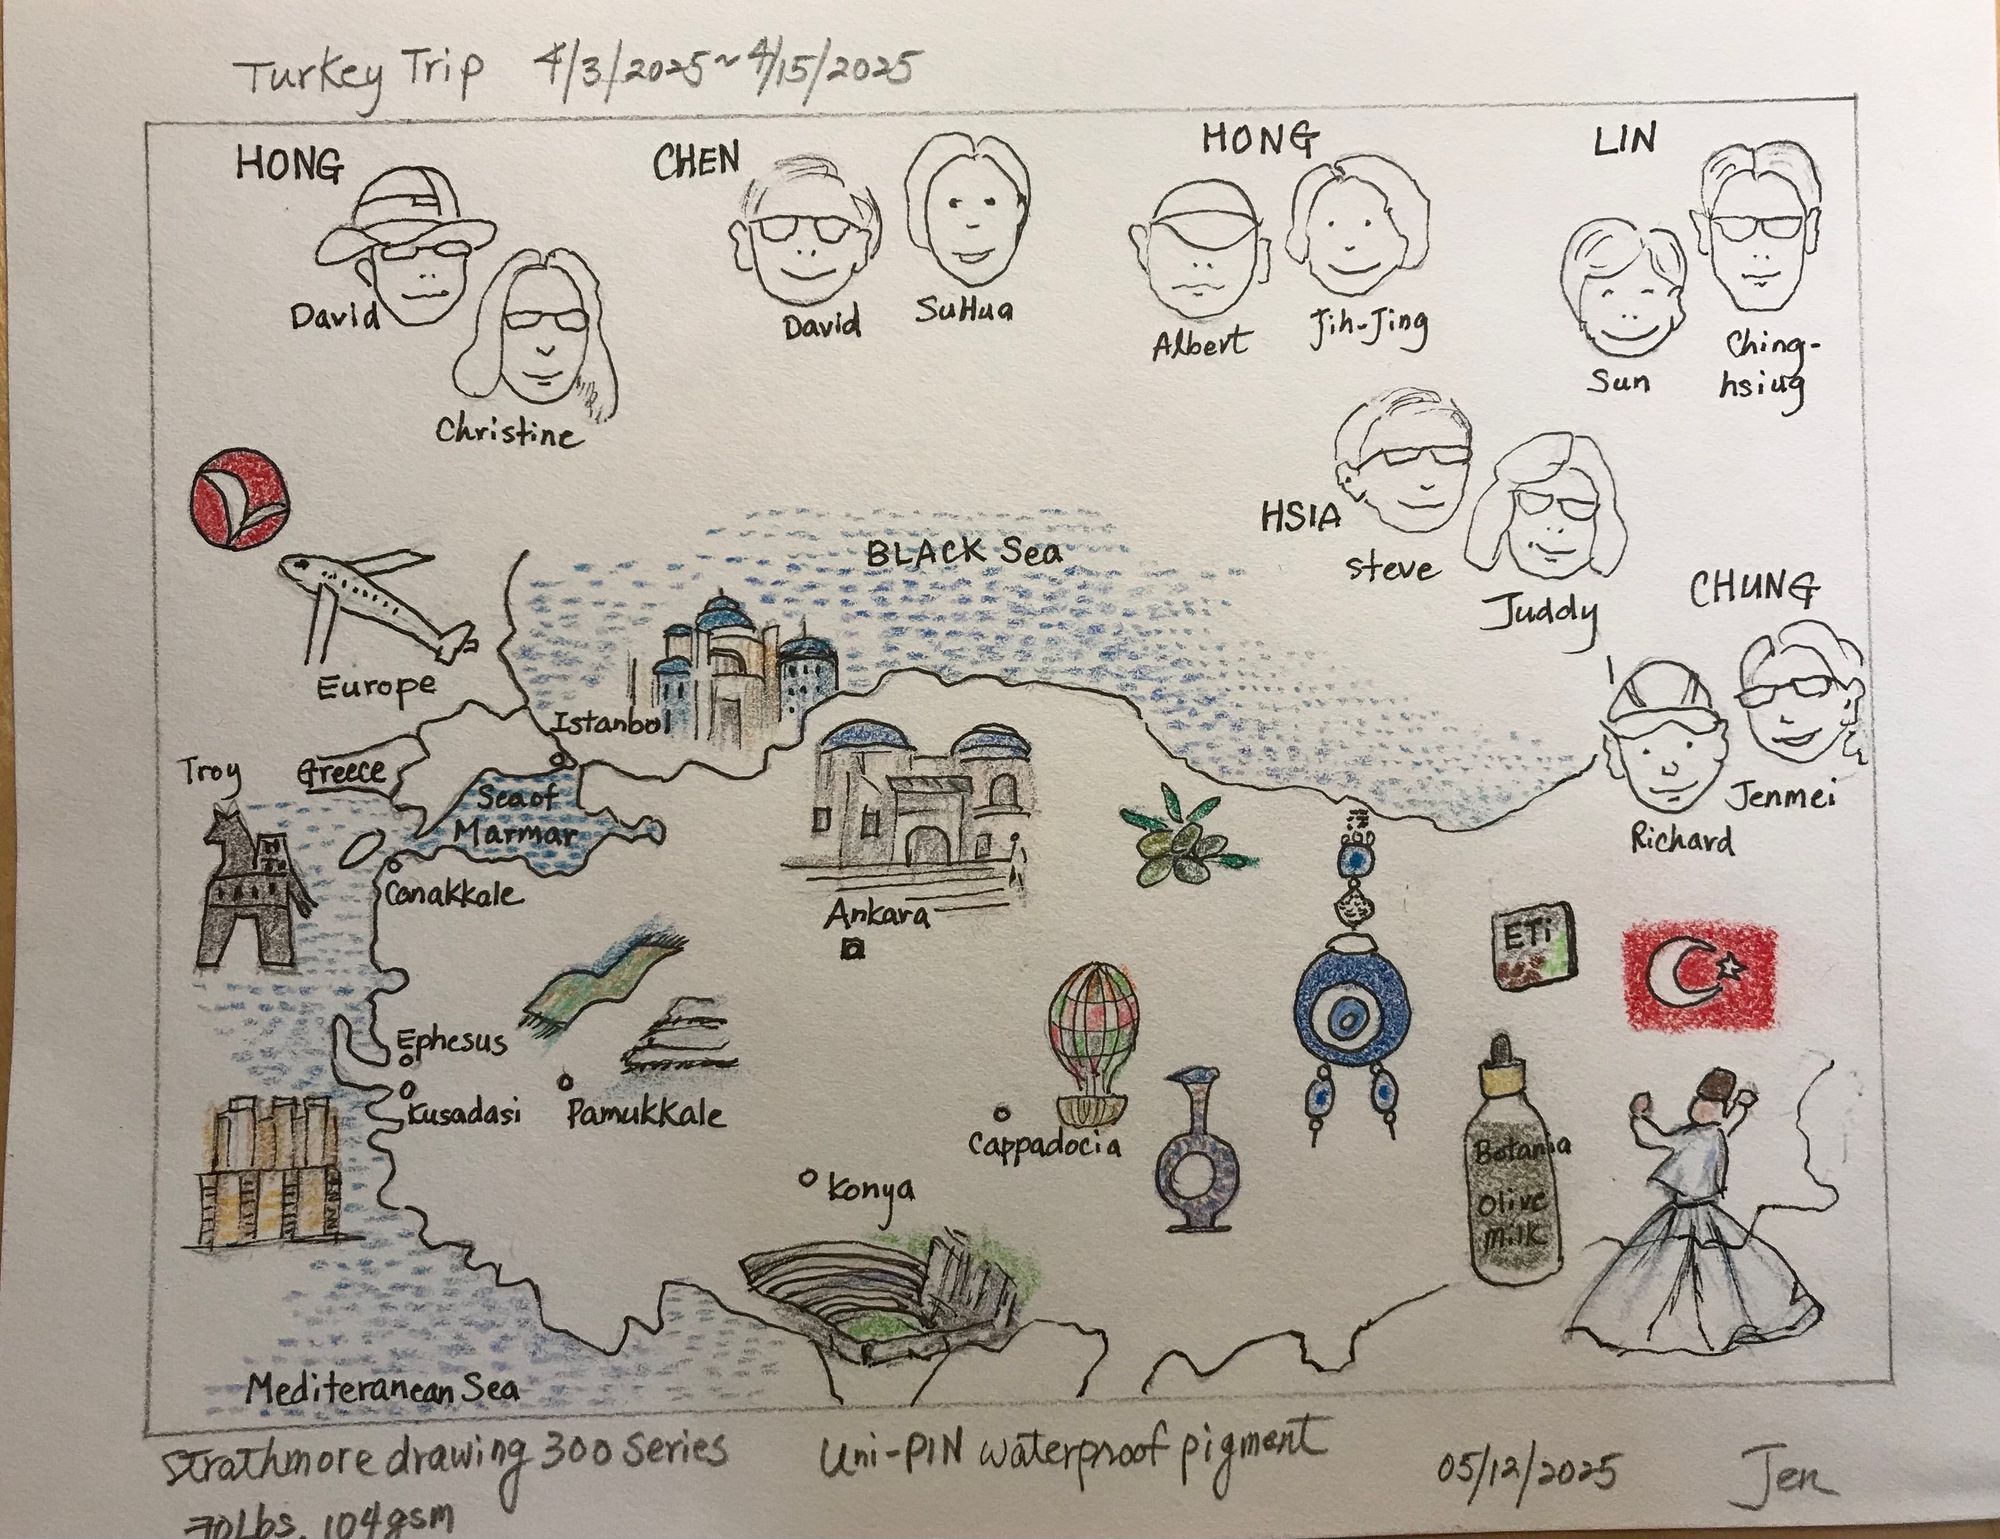 Turkey Trip 4/3/2025~4/15/2025
HONG
David
Christine
CHEN
David
SuHua
HONG
Albert
Jih-Jing
LIN
Sun
Ching-
hsiug
HSIA
Steve
Juddy
CHUNG
Richard
Jenmei
BLACK Sea
Europe
Istanbol
Troy
Greece
Sea of
Marmar
Canakkale
Ankara
ETi
Ephesus
Kusadasi
Pamukkale
Cappadocia
Konya
Botania
Olive
Milk
Mediteranean Sea
Strathmore drawing 300 Series
70Lbs, 104gsm
Uni-PIN waterproof pigment
05/12/2025
Jen